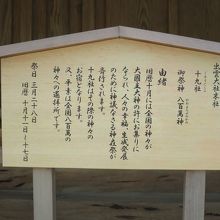 出雲大社末社
十九社
御祭神 八百萬神
由緒
旧暦十月には全国の神々が
大国主大神の許にお集りに
なられ、人々の幸福、生成発展
のために神議される神在祭が
斎行されます。
十九社はその際の神々の
お宿となります。
又、平常は全国八百萬の
神々への遙拝所です。
祭日 三月二十八日
旧暦 十月十一日〜十七日